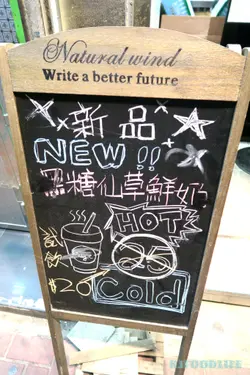 Natural wind
Write a better future
新品
NEW!!
黑糖仙草鮮奶
HOT
試飲
$20
Cold